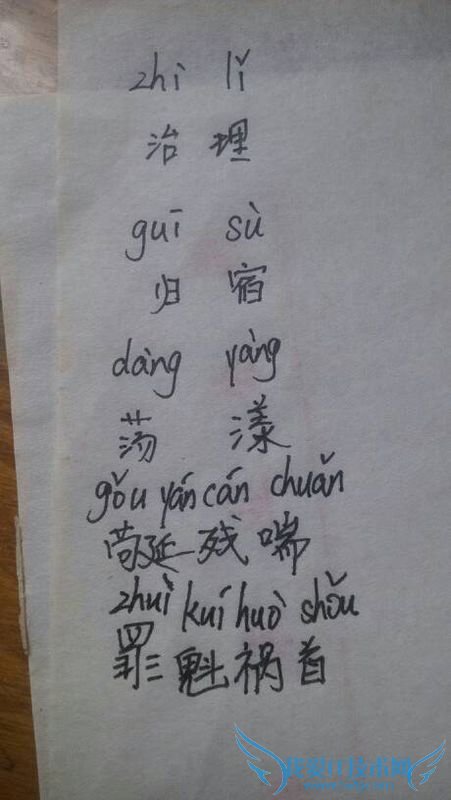 zhì lǐ
治理
guī sù
归宿
dàng yàng
荡漾
gǒu yán cán chuǎn
苟延残喘
zhuì kuí huò shǒu
罪魁祸首